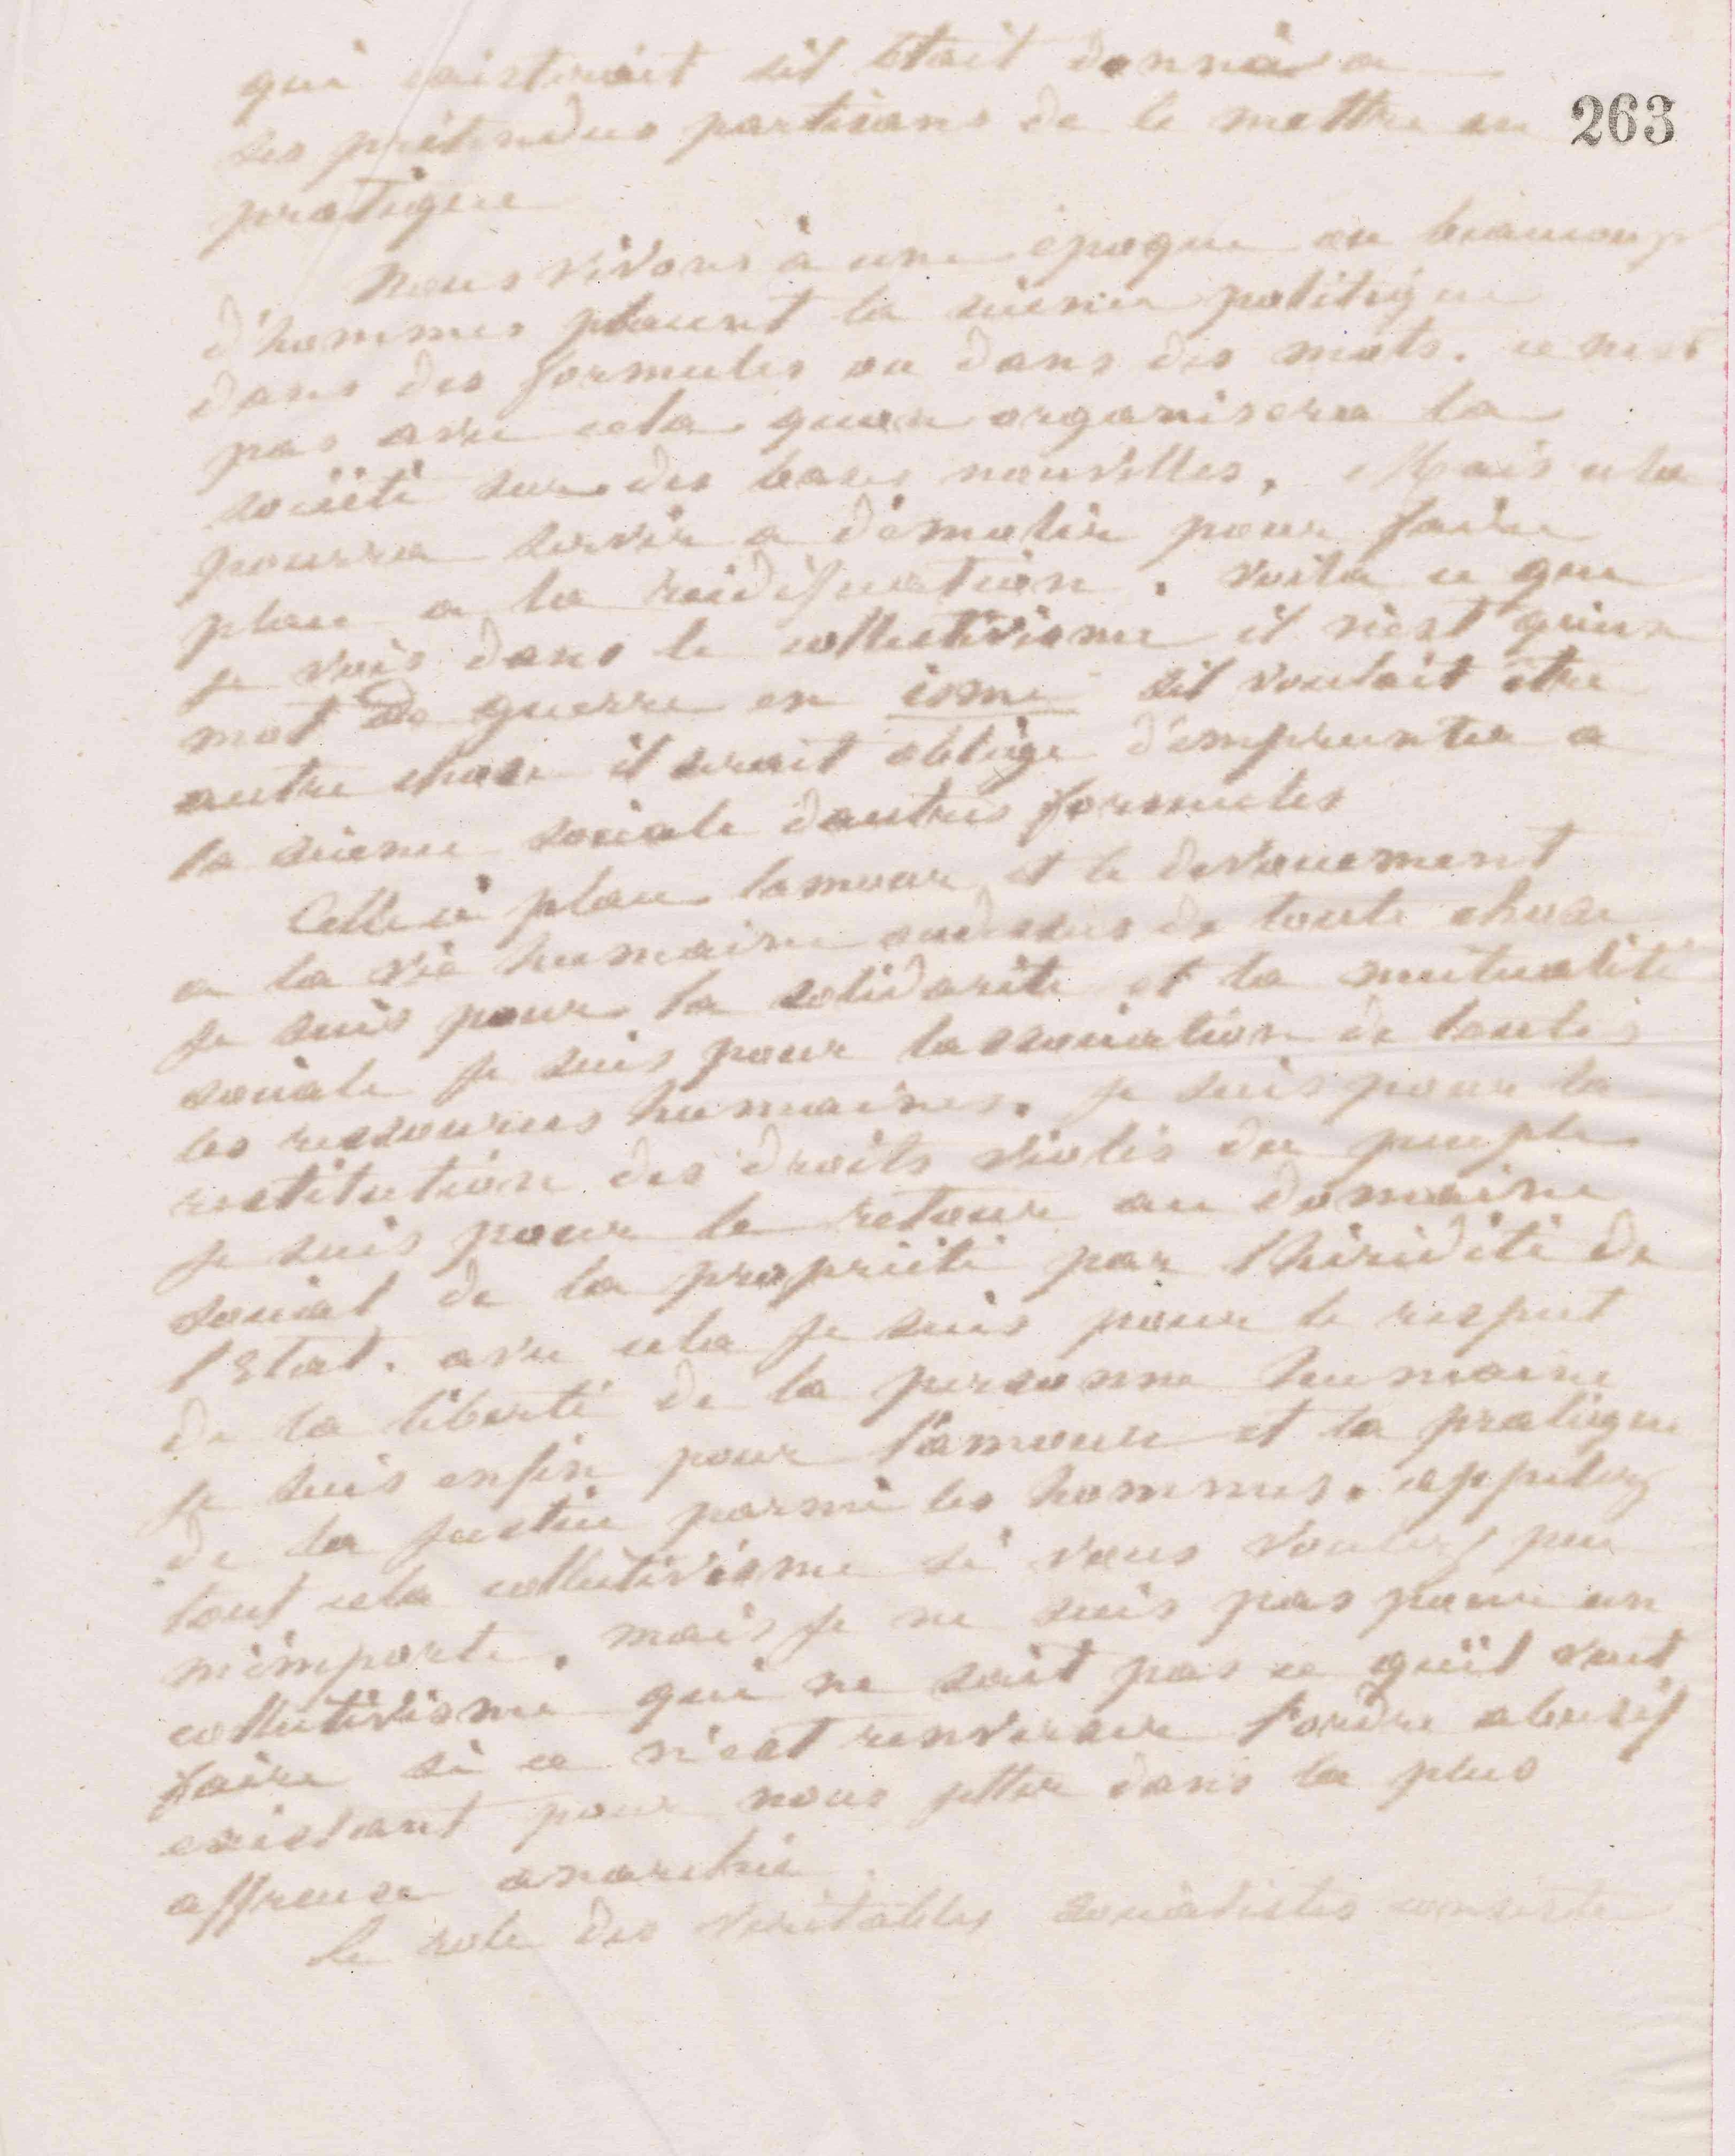 qui existerait sil était donné a
263
ses prétendus partisans de le mettre en
pratique
Nous vivons à une époque ou beaucoup
d'hommes placent la science politique
dans des formules ou dans des mots. ce nest
pas avec cela quon organisera la
société sur des bases nouvelles. Mais cela
pourra servir a démolir pour faire
place a la réédification. Voila ce que
je vois dans le collectivisme il n'est qu'un
mot de guerre en isme sil voulait être
autre chose il serait obligé d'emprunter a
la science sociale dautres formules
Celle ci place lamour et le dévouement
a la vie humaine audessus de toute chose
je suis pour la solidarité et la mutualité
sociale je suis pour lassociation de toutes
les ressources humaines. je suis pour la
restitution des droits violés du peuple
je suis pour le retour au domaine
social de la propriété par l'hérédité de
l'Etat. avec cela je suis pour le respect
de la liberté de la personne humaine
je suis enfin pour l'amour et la pratique
de la justice parmi les hommes. appelez
tout cela collectivisme si vous voulez peu
m'importe. mais je ne suis pas pour un
collectivisme qui ne sait pas ce qu'il veut
faire si ce n'est renverser l'ordre abusif
existant pour nous jetter dans la plus
affreuse anarchie.
Le role des veritables socialistes consiste